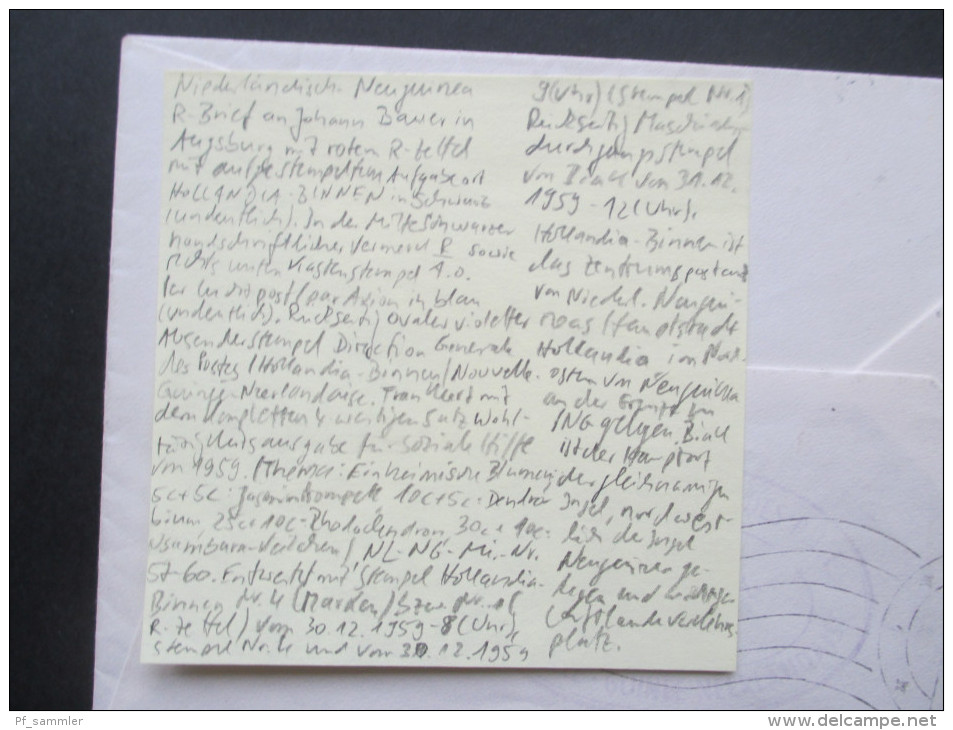 Niederländisch Neuguinea
R-Brief an Johann Bauer in
Augsburg mit rotem R-Zettel
mit aufgestempeltem Aufgabeort
HOLLANDIA-BINNEN in Schwarz
(undeutlich). In der Mitte Schwarzer
handschriftlicher Vermerk R sowie
rechts unten Kastenstempel A.O.
Par Avion in blau
(undeutlich). Rückseitig Ovaler violetter
Absenderstempel Direction Generale
des Postes/Hollandia-Binnen/Nouvelle-
Guinée Neerlandaise. Frankiert mit
dem kompletten 4 wertigen Satz Wohl-
tätigkeitsausgabe für Soziale Hilfe
von 1959. (Thema: Einheimische Blumen
5c+5c: 10c+5c: Dendro-
bium 25c+10c-Rhododendron, 30c+10c-
Usambara-Veilchen) NL-NG-Mi.-Nr.
57-60. Entwertet mit Stempel Hollandia-
Binnen Nr. 4 (Marken) bzw. Nr. 1 (
R-Zettel) vom 30.12.1959-8 (Uhr),
Stempel Nr. 4 und vom 30.12.1959
9 (Uhr) (Stempel Nr. 1)
Rückseitig Maschinen
durchgangsstempel
von Biak vom 31.12.
1959-12 (Uhr).
Hollandia-Binnen ist
das Zentrumspostamt
von Niederl. Neugui-
neas Hauptstadt
Hollandia im Nord-
osten von Neuguinea
an der Grenze zu
ING gelegen. Biak
ist der Hauptort
der gleichnamigen
Insel, nordwest-
lich der Insel
Neuguinea ge-
legen und wichtiger
verkehrs-
platz.
Pf_sammler
www.delcampe.net